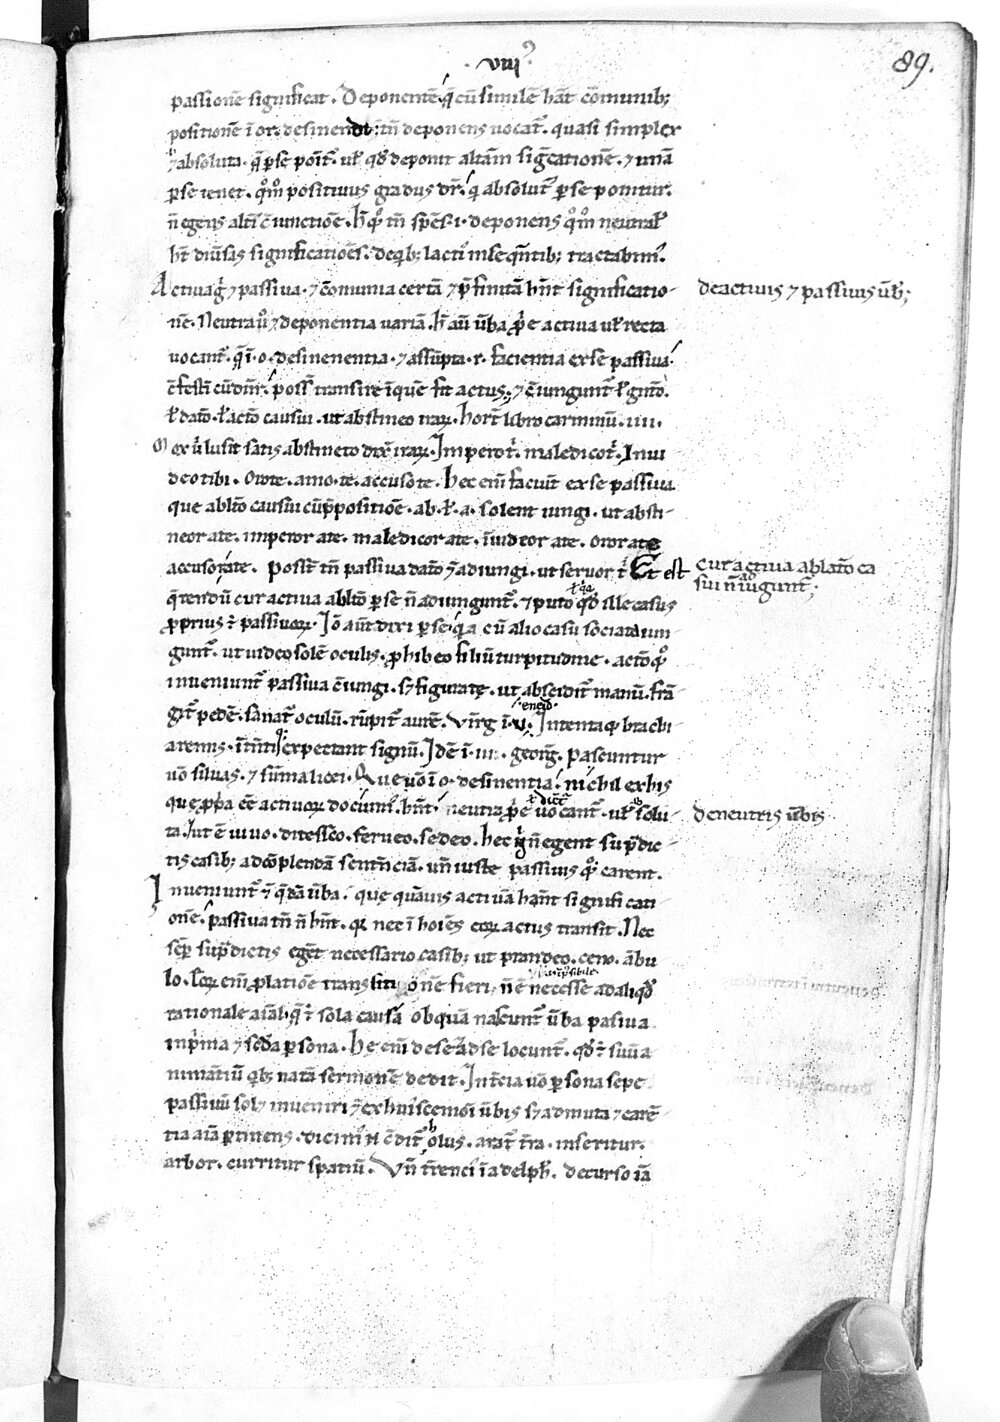 · viii ·
89.
passionē significat. Deponentē. q̄ cū similē hāt cōmunib;
positionē ī or. desinendi. tn̄ deponens uocat̄. quasi simplex
⁊ absoluta. q̄ ꝑ se pōit̄. uł qd̄ deponit altām sig̅catione. ⁊ unā
ꝑ se tenet. qm̄o positiuus gradus dr̄. q absolut̄ ꝑ se ponitur.
n̄ egens alti᷒ cōiunctiōe. h
hn̄t diūsas significatiōes. de qib; lacti᷒ in seqn̄tib; tractabim᷒.
Actiua ⁊ passiua. ⁊ cōmunia certā ⁊ p̄finitā hn̄t significatio-
nē. Neutra ⁊ deponentia uariā. h̄ aū ūba actiua uł recta
uocant̄. q̄ ī. o. desinentia. ⁊ assūpta. r. facientia ex se passiuā
poss̄t transire ī quē fit actus. ⁊ cōiungunt̄ ł gn̄to.
ł dato. ł actō casui. ut abstineo irarꝝ. hort̄ libro carminū. iiii.
Mox ū lusit satis abstineto dix̄ irarꝝ. Impero t̄. maledico t̄. Inui
deo tibi. Oro te. amo. te. accuso te. hec em̄ faciūt ex se passiua
que ablt̄o casui cū p̄positiōe. ab. ł. a. solent iungi. ut absti-
neor a te. imperor a te. maledicor a te. īuideor a te. oror a te
accusor a te. Poss̄t tn̄ passiua datō ⁊ adiungi. ut seruor t̄ Et est
q̄rendū cur actiua ablt̄o ꝑ se n̄ adiungunt̄. ⁊ puto qd̄ ille casus
ꝓprius ē passiuorꝝ. Iō aūt dixi ꝑ se. q̄a cū alio casu sociata iun-
gunt̄. ut uideo solē oculis. ꝓhibeo filiū turpitudine. actō qq̄
inueniunt̄ passiua cōiungi. s; figurate. ut abscidit̄ manū. frā-
git̄ pedē. sanat̄ oculū. rūpit̄ aurē. Virg ī. v. eneid. Intentaq brachi-
a remis. ītn̄ti expectant signū. Idē ī. iii. georḡ. pascuntur
uō siluas. ⁊ sūma licei. Que uō ī o. desinentia. nichil ex his
que ꝓpa ēē actiuorꝝ docuim᷒. hn̄t. neutra uocant̄. uł absolu-
ta. ut ē uiuo. ditesco. ferueo. sedeo. hec n̄ egent sup̄dic-
tis casib; ad cōplendā sentn̄ciā. un̄ iuste passiuis qq̄ carent.
Inueniunt̄ ⁊ q̄dā ūba. que quāuis actiuā hān̄t significati-
onē. passiua tn̄ n̄ hn̄t. q nec ī hoiēs eorꝝ actus transit. Nec
sēp̄ sup̄dictis egēt necessario casib; ut prandeo. ceno. ābu-
lo. Horꝝ em̄ ꝓlatiōe transitiōnē fieri n̄ ē necesse ad aliqd̄
rationale aīal. q̄ ē sola causā ob quā nascunt̄ ūba pasiua
in p̄ma ⁊ scd̄a ꝑsona. he em̄ de se ad se locunt̄. qd̄ ē suū a-
nimātiū qib; natā sermonē dedit. In t̄cia uō ꝑsona sepe
passiuū sol; inueniri ⁊ ex huiscemōi ūbis s; ad muta ⁊ carē-
tia aīa ꝑtinens. dicim᷒ n̄ cōdit̄ holus. arat̄ t̄ra. inseritur.
arbor. curritur spatiū. Vn̄ t̄renci᷒ ī adelph. decurso iā
de actiuis ⁊ passiuis ūb;
cur actiua ablat̄o ca
sui n̄ adiūgunt̄;
de neutris ūbis